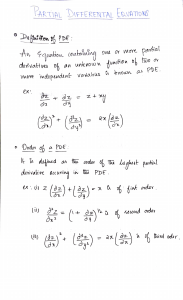 PARTIAL DIFFERENTIAL EQUATIONS
Definition of PDE:
An Equation containing one or more partial
derivatives of an unknown function of two or
more independent variables is known as PDE.
ex: ∂z/∂x + ∂z/∂y = z + xy
(∂z/∂x)² + (∂²z/∂y²) = 2x (∂z/∂x)
Order of a PDE
It is defined as the order of the highest partial
derivative occuring in the PDE.
ex: (i) 2 (∂z/∂x) + (∂z/∂y) = x is of first order
(ii) ∂²z/∂x² = (1 + ∂z/∂y)^½ is of second order
(iii) (∂z/∂x)² + (∂³z/∂y³) = 2x (∂z/∂x) is of third order.